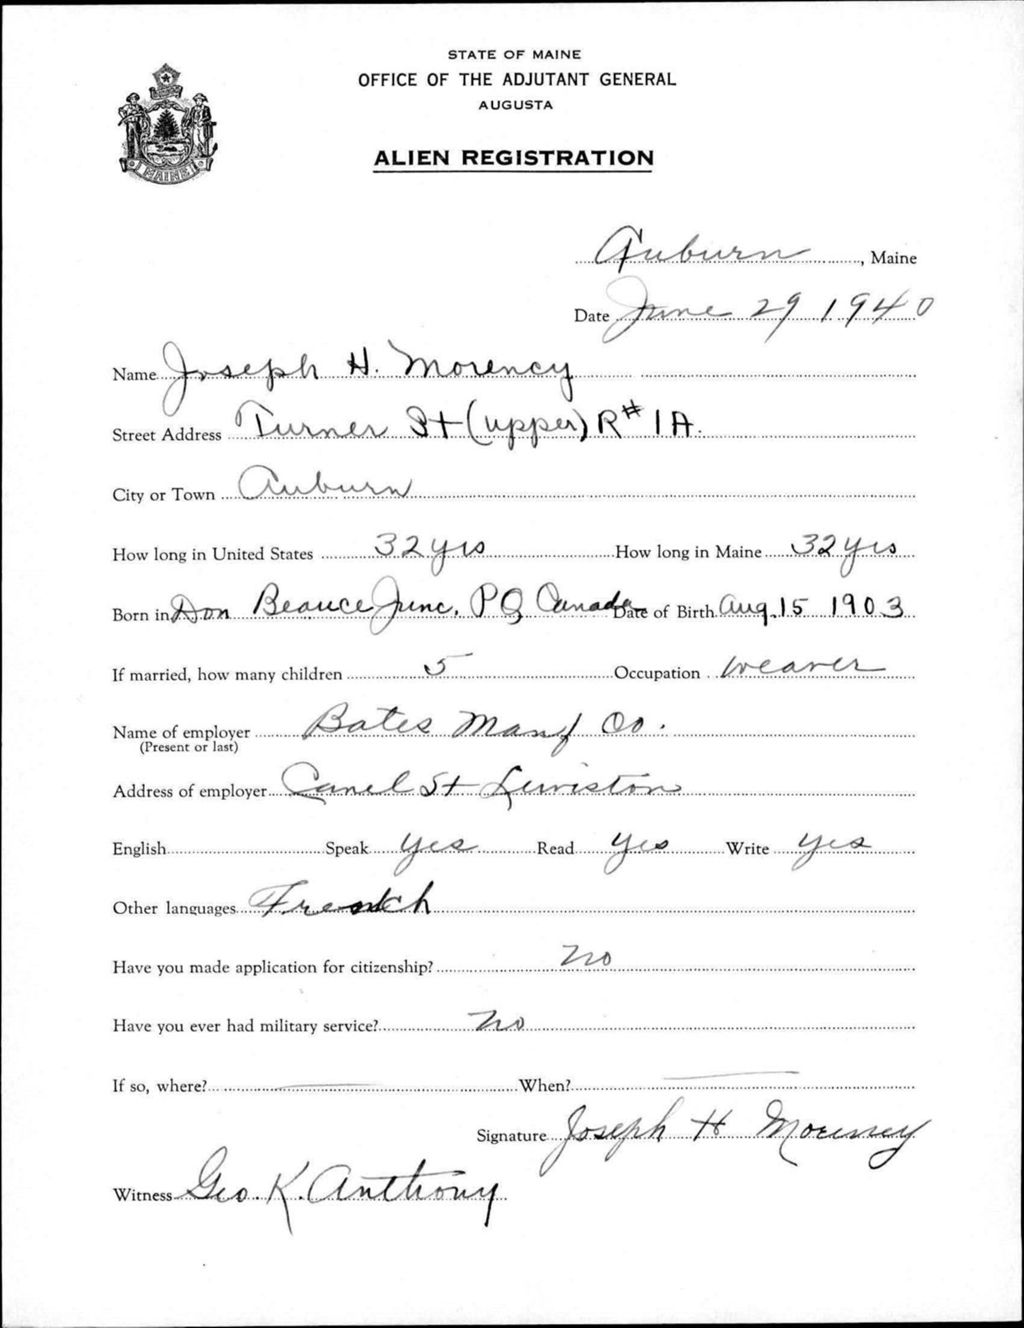 STATE OF MAINE
OFFICE OF THE ADJUTANT GENERAL
AUGUSTA
ALIEN REGISTRATION
MAINE
Auburn, Maine
Date June 29 1940
Name Joseph H. Morency
Street Address Turner St (upper) R#1A.
City or Town Auburn
How long in United States 32 yrs How long in Maine 32 yrs
Born in Don Beauce Junc. PQ Canada Date of Birth Aug. 15 1903
If married, how many children 5 Occupation weaver
Name of employer Bates Manf Co.
(Present or last)
Address of employer Canel St Lewiston
English Speak yes Read yes Write yes
Other languages French
Have you made application for citizenship? no
Have you ever had military service? no
If so, where? When?
Signature Joseph H Morency
Witness Geo. K. Anthony